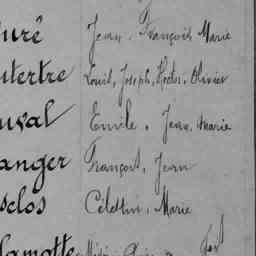 uré Jean, François Marie
utertre Louis, Joseph, Hector, Olivier
uval Emile, Jean, Marie
anger François, Jean
sclos Célestin, Marie
lamotte